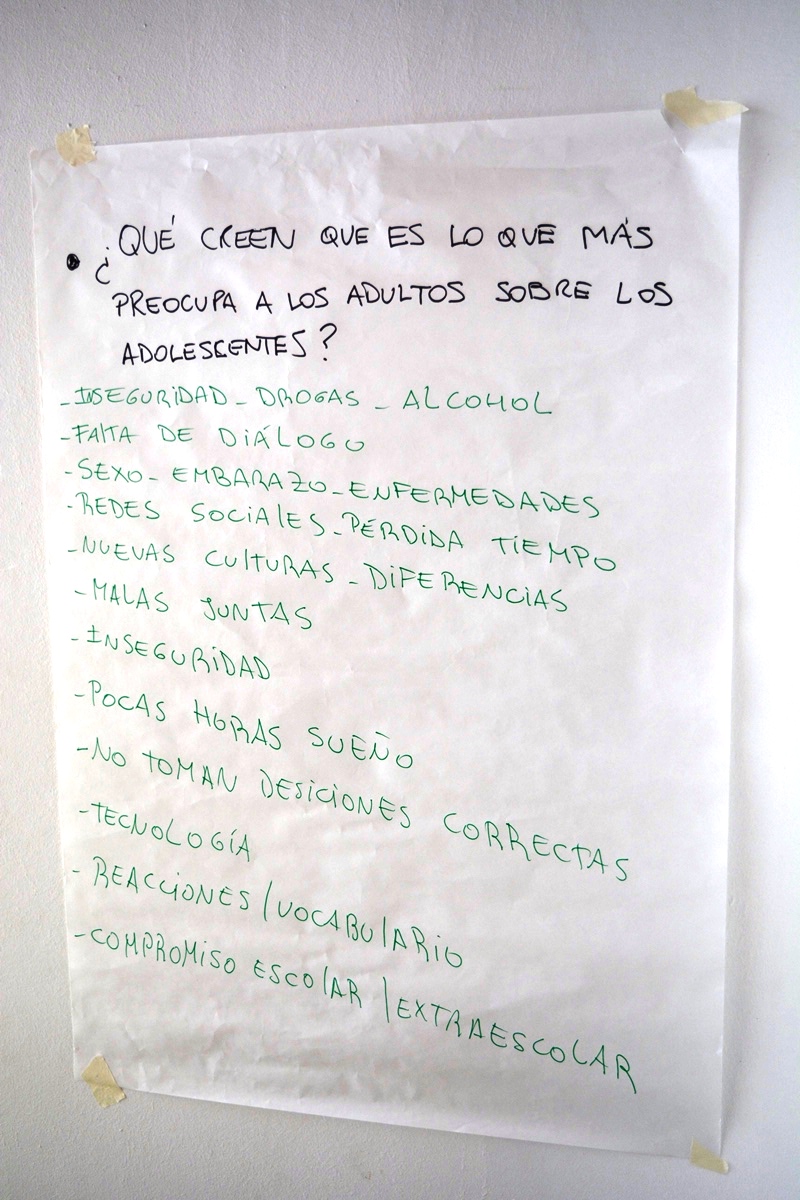 • ¿QUÉ CREEN QUE ES LO QUE MÁS
PREOCUPA A LOS ADULTOS SOBRE LOS
ADOLESCENTES?
-INSEGURIDAD - DROGAS - ALCOHOL
-FALTA DE DIÁLOGO
-SEXO - EMBARAZO - ENFERMEDADES
-REDES SOCIALES - PÉRDIDA TIEMPO
-NUEVAS CULTURAS - DIFERENCIAS
-MALAS JUNTAS
-INSEGURIDAD
-POCAS HORAS SUEÑO
-NO TOMAN DESICIONES CORRECTAS
-TECNOLOGÍA
-REACCIONES/VOCABULARIO
-COMPROMISO ESCOLAR/EXTRAESCOLAR